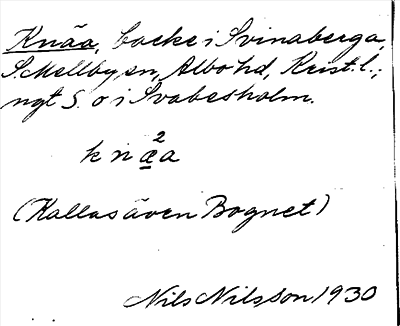 Knäa, backe i Svinaberga,
S. Mellby sn, Albo hd, Krist. l.;
ngt S. o i Svabesholm.
2
knæa
(Kallas även Bognet)
Nils Nilsson 1930